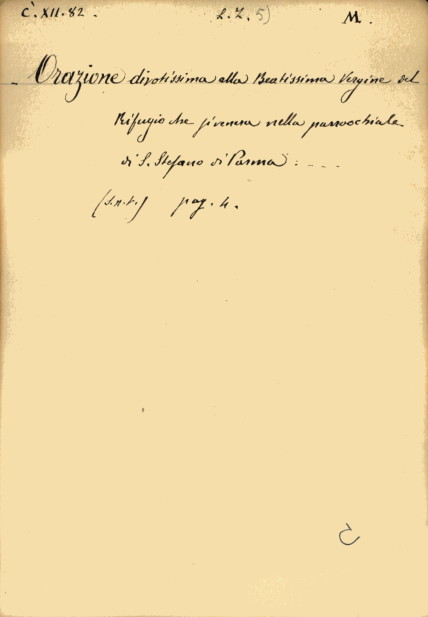 C. XII. 82. L. Z. 5) M.
Orazione divotissima alla Beatissima Vergine del
Rifugio che si venera nella parrochiale
di S. Stefano di Parma: - - -
(s.n.t.) pag. 4.
C